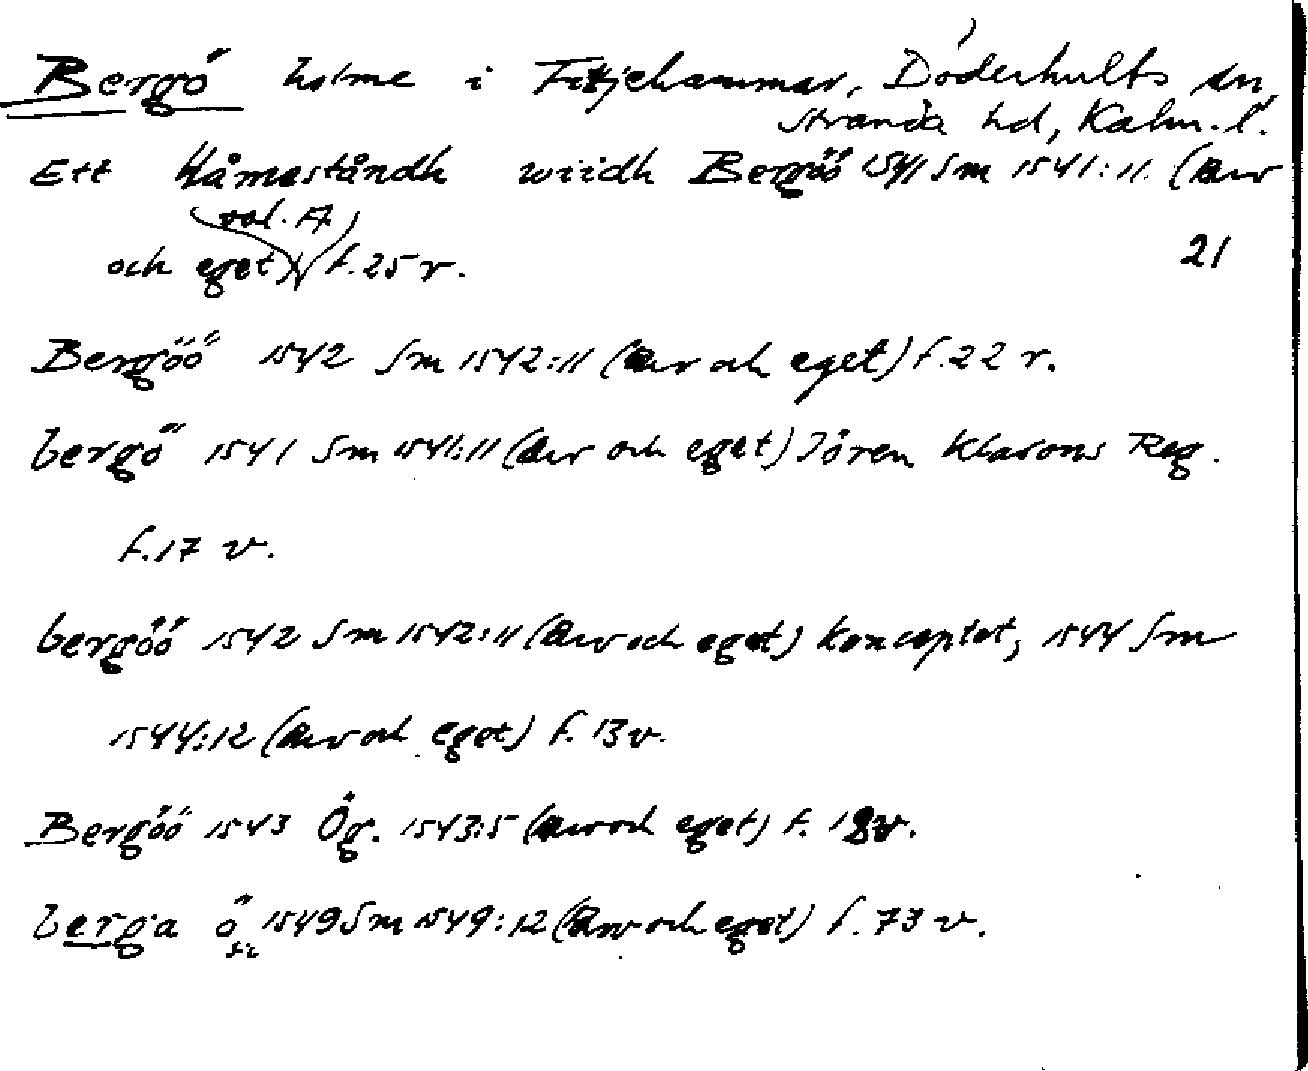 Bergö holme i Fittjehammar, Döderhults sn,
Stranda hd, Kalm. l.
Ett Håmeståndh wiidh Bergöö 1541 Sm 1541:11 (Arv
vol. A
och eget) f. 25 r. 21
Bergöö 1542 Sm 1542:11 (Arv och eget) f. 22 r.
bergö 1541 Sm 1541:11 (Arv och eget) Jören Klasons Reg.
f. 17 v.
bergöö 1542 Sm 1542:11 (Arv och eget) Konceptet, 1544 Sm
1544:12 (Arv och eget) f. 13 v.
Bergöö 1543 Ög. 1543:5 (Arv och eget) f. 18v.
berga ö 1549 Sm 1549:12 (Arv och eget) f. 73 v.